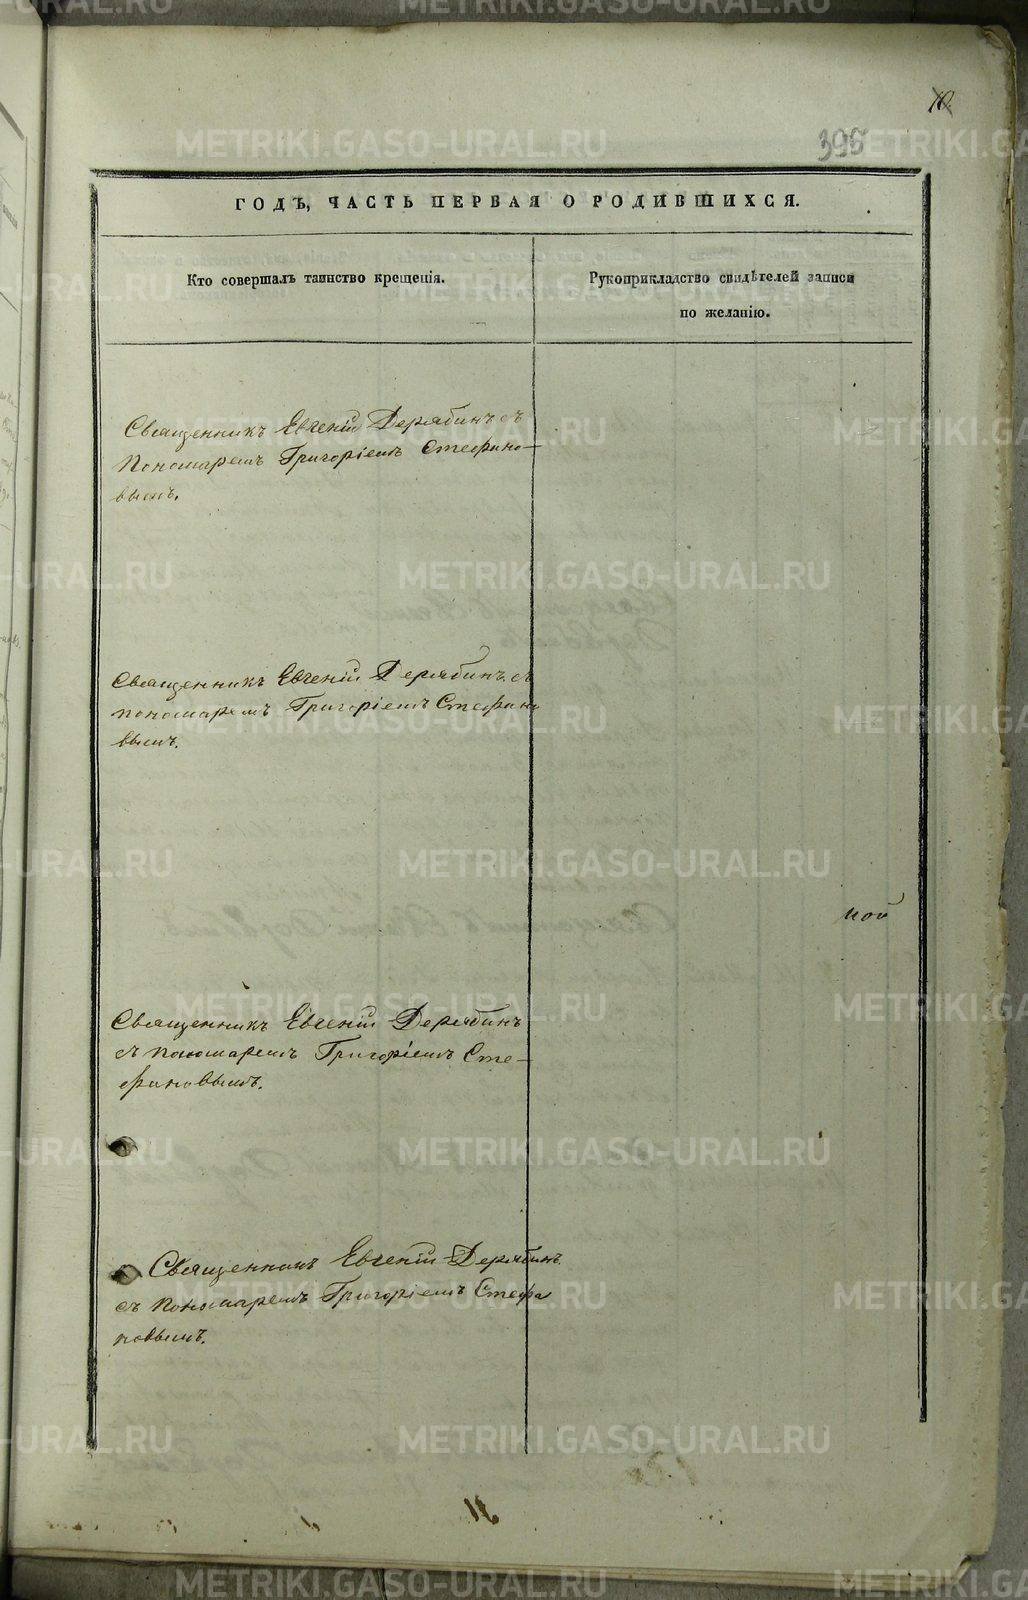 10
395
ГОДЪ, ЧАСТЬ ПЕРВАЯ О РОДИВШИХСЯ.
Кто совершалъ таинство крещенія.
Рукоприкладство свидѣтелей записи
по желанію.
Священникъ Евгеній Дерябинъ съ
Пономаремъ Григоріемъ Стефано-
вымъ.
Священникъ Евгеній Дерябинъ съ
пономаремъ Григоріемъ Стефано
вымъ.
ной
Священникъ Евгеній Дерябинъ
съ пономаремъ Григоріемъ Сте-
фановымъ.
Священникъ Евгеній Дерябинъ
съ пономаремъ Григоріемъ Стефа
новымъ.
METRIKI.GASO-URAL.RU